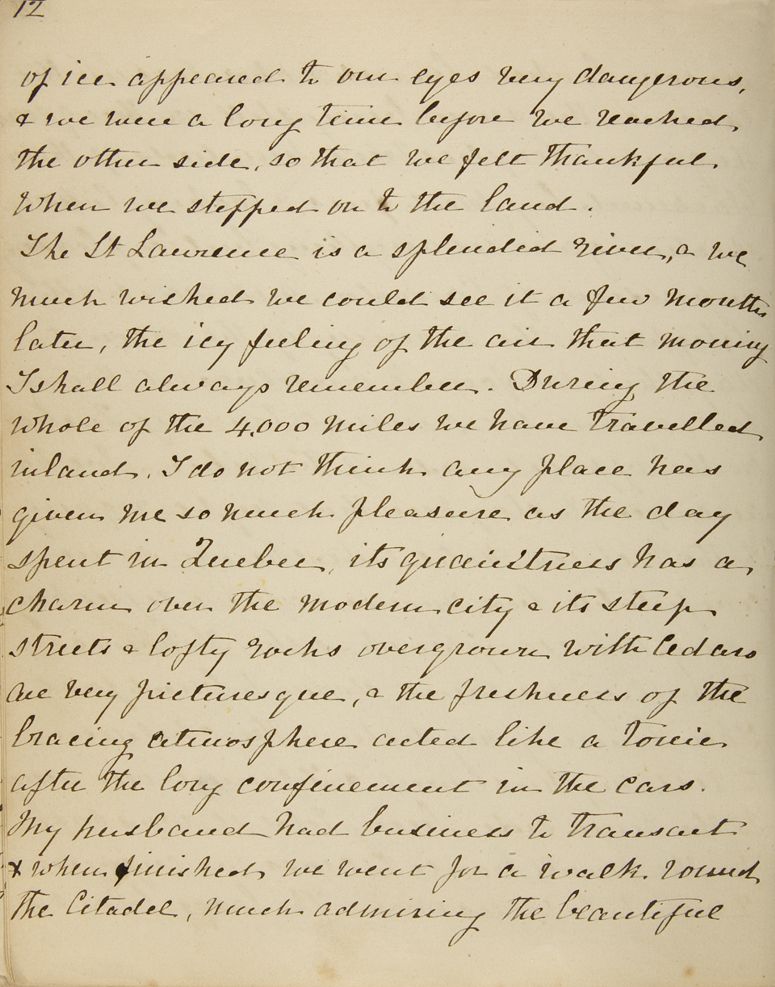 12
of ice appeared to our eyes very dangerous,
& we were a long time before we reached
the other side, so that we felt thankful
when we stepped on to the land.
The St Lawrence is a splendid river, & we
much wished we could see it a few months
later, the icy feeling of the air that morning
I shall always remember. During the
whole of the 4,000 miles we have travelled
inland, I do not think any place has
given me so much pleasure as the day
spent in Quebec, its quaintness has a
charm over the modern city & its steep
streets & lofty rocks overgrown with cedars
are very picturesque, & the freshness of the
bracing atmosphere acted like a tonic
after the long confinement in the cars.
My husband had business to transact
& when finished we went for a walk round
the Citadel, much admiring the beautiful